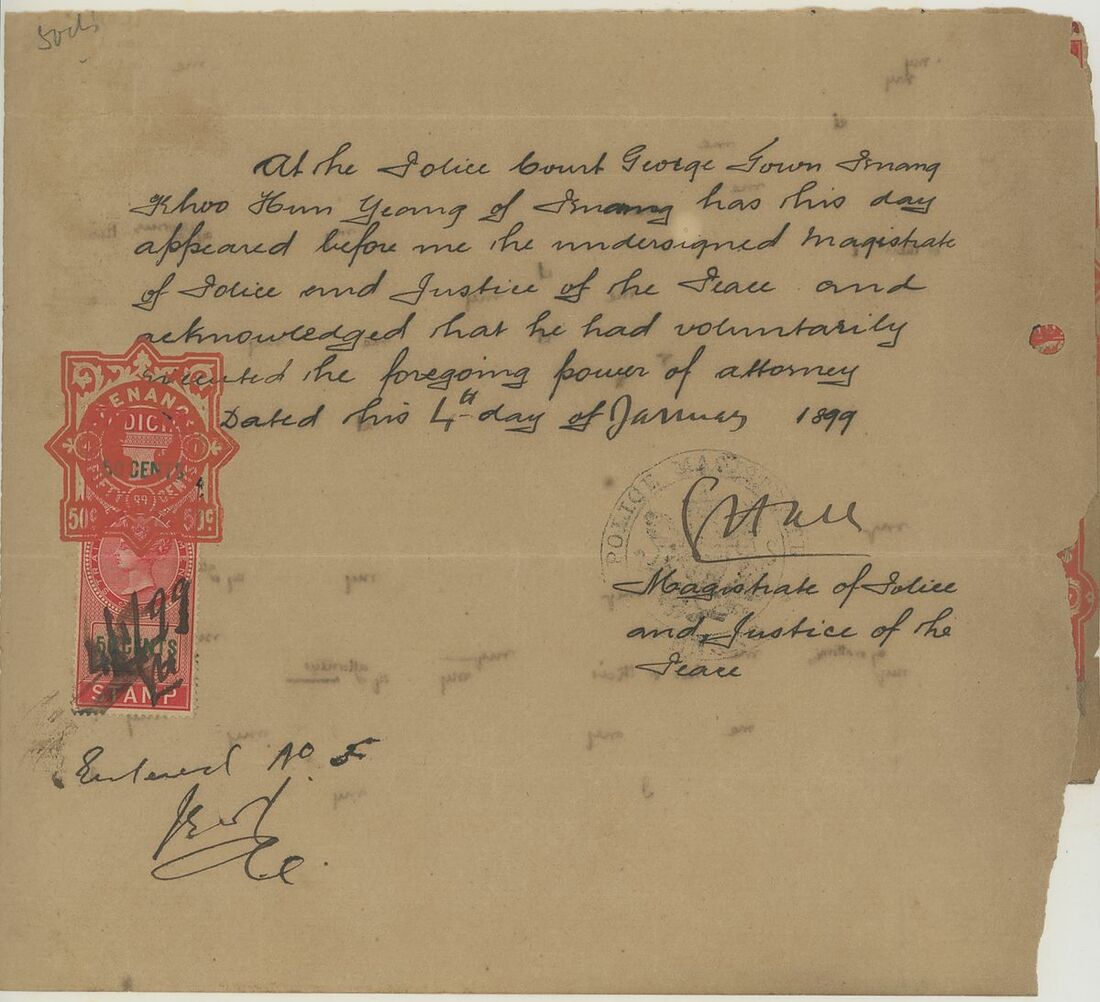 50cts
At the Police Court George Town Penang
Khoo Hun Yeang of Penang has this day
appeared before me the undersigned Magistrate
of Police and Justice of the Peace and
acknowledged that he had voluntarily
executed the foregoing power of attorney
Dated this 4th day of January 1899
PENANG
JUDICIAL
50 CENTS
FIFTY CENTS
99
50c 50c
4/1/99
50 CENTS
STAMP
POLICE MAGISTRATE
Magistrate of Police
and Justice of the
Peace
Entered No 5